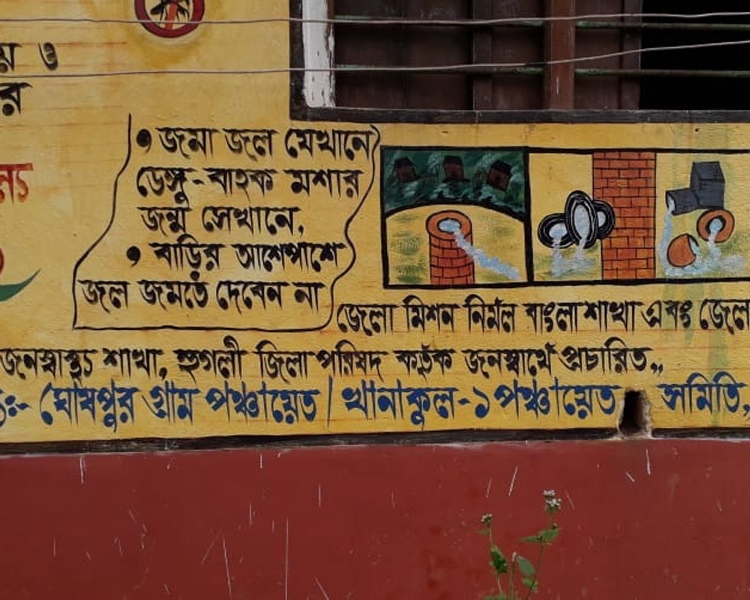 য় ও
র
• জমা জল যেখানে
ডেঙ্গু-বাহক মশার
জন্ম সেখানে,
• বাড়ির আশেপাশে
জল জমতে দেবেন না
জেলা মিশন নির্মল বাংলা শাখা এবং জেল
জনস্বাস্থ্য শাখা, হুগলী জিলা পরিষদ কর্তৃক জনস্বার্থে প্রচারিত,,
ঃ- ঘোষপুর গ্রাম পঞ্চায়েত | খানাকুল-১ পঞ্চায়েত সমিতি,